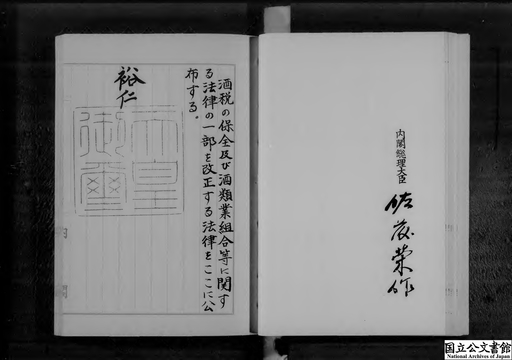 酒税の保全及び酒類業組合等に関す
る法律の一部を改正する法律をここに公
布する。
裕仁
天皇
御璽
内閣総理大臣
佐藤榮作
国立公文書館
National Archives of Japan